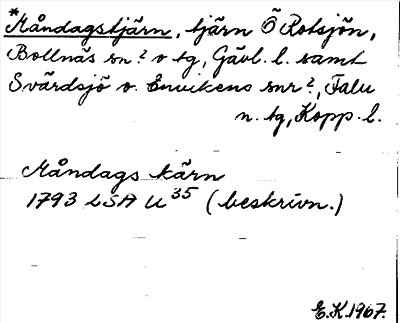 *Måndagstjärn, tjärn Ö Rotsjön,
Bollnäs sn? o tg, Gävl. l. samt
Svärdsjö o. Envikens snr?, Falu
n. tg, Kopp. l.
Måndags kärn
1793 LSA U35 (beskrivn.)
E.K.1967.